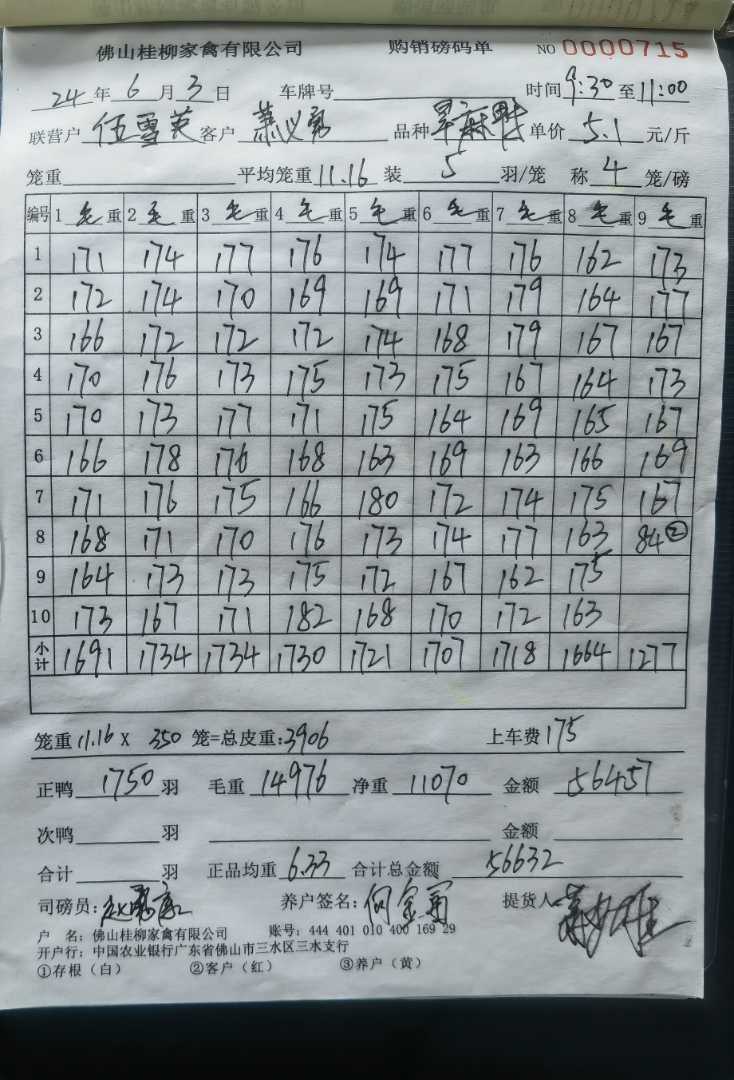 佛山桂柳家禽有限公司 购销磅码单 NO 0000715
24 年 6 月 3 日 车牌号 时间 9:30 至 11:00
联营户 伍雪英 客户 萧义勇 品种 单价 5.1 元/斤
笼重 平均笼重 11.16 装 5 羽/笼 称 4 笼/磅
编号 1 毛 重 2 毛 重 3 毛 重 4 毛 重 5 毛 重 6 毛 重 7 毛 重 8 毛 重 9 毛 重
1 171 174 177 176 174 177 176 162 173
2 172 174 170 169 169 171 179 164 177
3 166 172 172 172 174 168 179 167 167
4 170 176 173 175 173 175 167 164 173
5 170 173 177 171 175 164 169 165 167
6 166 178 176 168 163 169 163 166 169
7 171 176 175 166 180 172 174 175 167
8 168 171 170 176 173 174 177 163 84②
9 164 173 173 175 172 167 162 175
10 173 167 171 182 168 170 172 163
小计 1691 1734 1734 1730 1721 1707 1718 1664 1277
笼重 11.16 X 350 笼=总皮重:3906 上车费 175
正鸭 1750 羽 毛重 14976 净重 11070 金额 56457
次鸭 羽 金额
合计 羽 正品均重 6.33 合计总金额 56632
司磅员: 养户签名: 何金菊 提货人
户 名: 佛山桂柳家禽有限公司 账号: 444 401 010 400 169 29
开户行: 中国农业银行广东省佛山市三水区三水支行
①存根（白） ②客户（红） ③养户（黄）